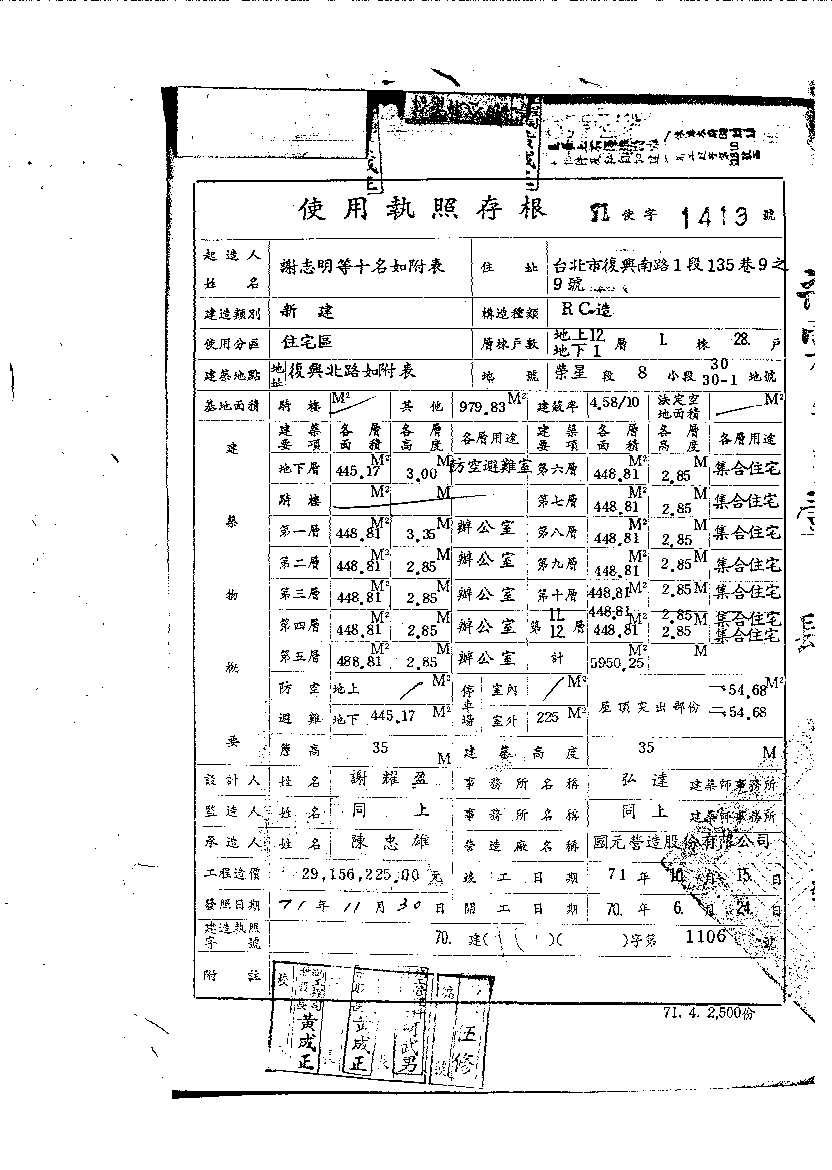 使用執照存根 71 使字 1413 號
起造人姓名 謝志明等十名如附表 住址 台北市復興南路1段135巷9之9號
建造類別 新建 構造種類 RC造
使用分區 住宅區 層棟戶數 地上12地下1層 1. 棟 28. 戶
建築地點 地址 復興北路如附表 地號 榮星段 8 小段 30 30-1 地號
基地面積 騎樓 M² 其他 979.83 M² 建蔽率 4.58/10 法定空地面積 M²
建築物概要 建築要項 各層面積 各層高度 各層用途 建築要項 各層面積 各層高度 各層用途
地下層 445.17 M² 3.00 M 防空避難室 第六層 448.81 M² 2.85 M 集合住宅
騎樓 M² M 第七層 448.81 M² 2.85 M 集合住宅
第一層 448.81 M² 3.35 M 辦公室 第八層 448.81 M² 2.85 M 集合住宅
第二層 448.81 M² 2.85 M 辦公室 第九層 448.81 M² 2.85 M 集合住宅
第三層 448.81 M² 2.85 M 辦公室 第十層 448.81 M² 2.85 M 集合住宅
第四層 448.81 M² 2.85 M 辦公室 第 11. 12. 層 448.81 448.81 M² 2.85 2.85 M 集合住宅 集合住宅
第五層 488.81 M² 2.85 M 辦公室 計 5950.25 M² M
防空避難 地上 M² 停車場 室內 M² 屋頂突出部份 一.54.68 M²
地下 445.17 M² 室外 225 M² 二.54.68
簷高 35 M 建築高度 35 M
設計人 姓名 謝耀盈 事務所名稱 弘達 建築師事務所
監造人 姓名 同上 事務所名稱 同上 建築師事務所
承造人 姓名 陳忠雄 營造廠名稱 國元營造股份有限公司
工程造價 29,156,225.00 元 竣工日期 71 年 10. 月 15. 日
發照日期 71 年 11 月 30 日 開工日期 70. 年 6. 月 24. 日
建造執照字號 70. 建( )( )字第 1106 號
附註
黃成正
71. 4. 2,500份